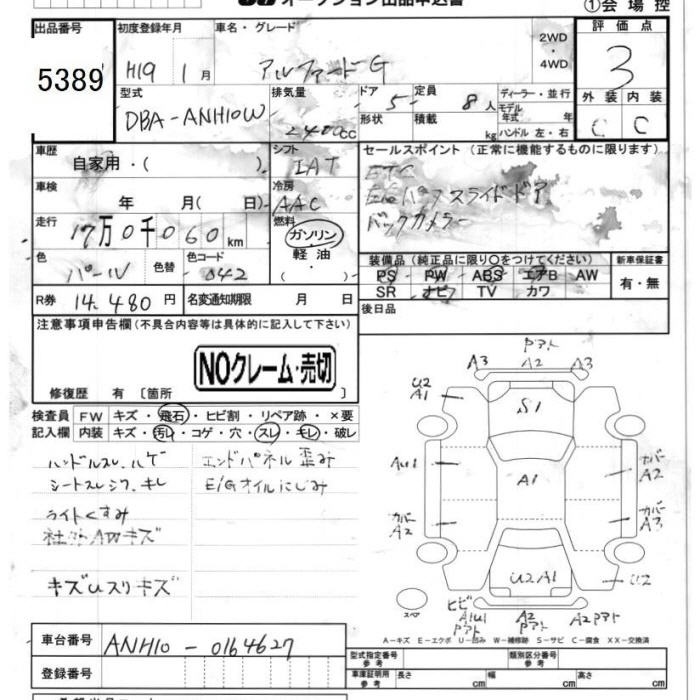 オークション出品申込書
①会場控
出品番号 5389
初度登録年月 H19 1月
車名・グレード アルファードG
2WD・4WD
評価点 3
外装 C 内装 C
型式 DBA-ANH10W
排気量 2400cc
ドア 5
形状
定員 8人
積載 kg
ディーラー・並行
モデル年式 年
ハンドル 左・右
車歴 自家用・( )
シフト IAT
車検 年 月( 日)
冷房 AAC
走行 17万0千060km
燃料 ガソリン・軽油・( )
色 パール 色替
色コード 042
セールスポイント (正常に機能するものに限ります)
ETC
スライドドア
バックカメラー
装備品 (純正品に限り○をつけてください)
PS PW ABS エアB AW
SR ナビ TV カワ
新車保証書 有・無
R券 14,480円
名変通知期限 月 日
後日品
注意事項申告欄 (不具合内容等は具体的に記入して下さい)
NOクレーム・売切
修復歴 有 〔箇所 〕
検査員記入欄
FW キズ・飛石・ヒビ割・リペア跡・×要
内装 キズ・汚レ・コゲ・穴・スレ・キレ・破レ
ハンドルスレ、ハゲ
シートスレシワ、キレ
ライトくすみ
社外AWキズ
キズUスリキズ
エンドパネル歪み
E/Gオイルにじみ
Pアト
A3 A2 A3
U2
A1
S1
AU1
A1
カバーA2
カバーA2
カバーA3
U2A1
U2
ヒビ
A1U1
Pアト
A2
Pアト
A2Pアト
スペア
A-キズ E-エクボ U-凹み W-補修跡 S-サビ C-腐食 XX-交換済
車台番号 ANH10-0164627
登録番号
型式指定番号 参考
類別区分番号 参考
車庫証明用 参考 長さ cm 幅 cm 高さ cm